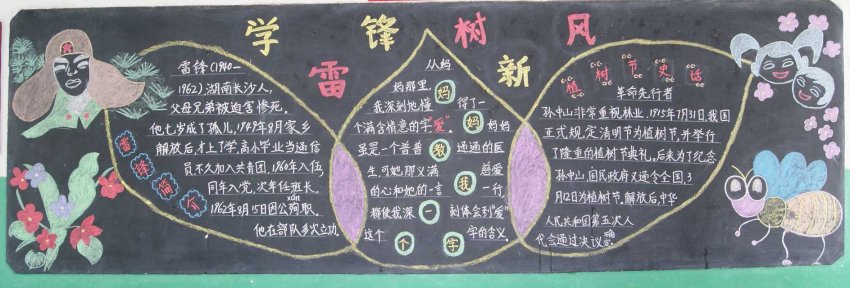 学雷锋树新风
雷锋简介
雷锋(1940—
1962)湖南长沙人,
父母兄弟被迫害惨死。
他七岁成了孤儿,1949年8月家乡
解放后才上了学,高小毕业当通信
员不久加入共青团,1960年入伍,
同年入党,次年任班长,
xùn
1962年8月15日因公殉职。
他在部队多次立功。
妈妈教我一个字
从妈
妈那里,
我深刻地懂得了一
个满含情意的字"爱"。妈妈
虽是一个普普通通的医
生,可她那又满慈爱
的心和她的一言一行
都使我深刻体会到"爱"
这个字的含义。
植树节史话
革命先行者
孙中山非常重视林业,1915年7月31日,我国
正式规定清明节为植树节,并举行
了隆重的植树节典礼。后来为了纪念
孙中山,国民政府又通令全国,3
月12日为植树节。解放后,中华
人民共和国第五次人
代会通过决议确定。